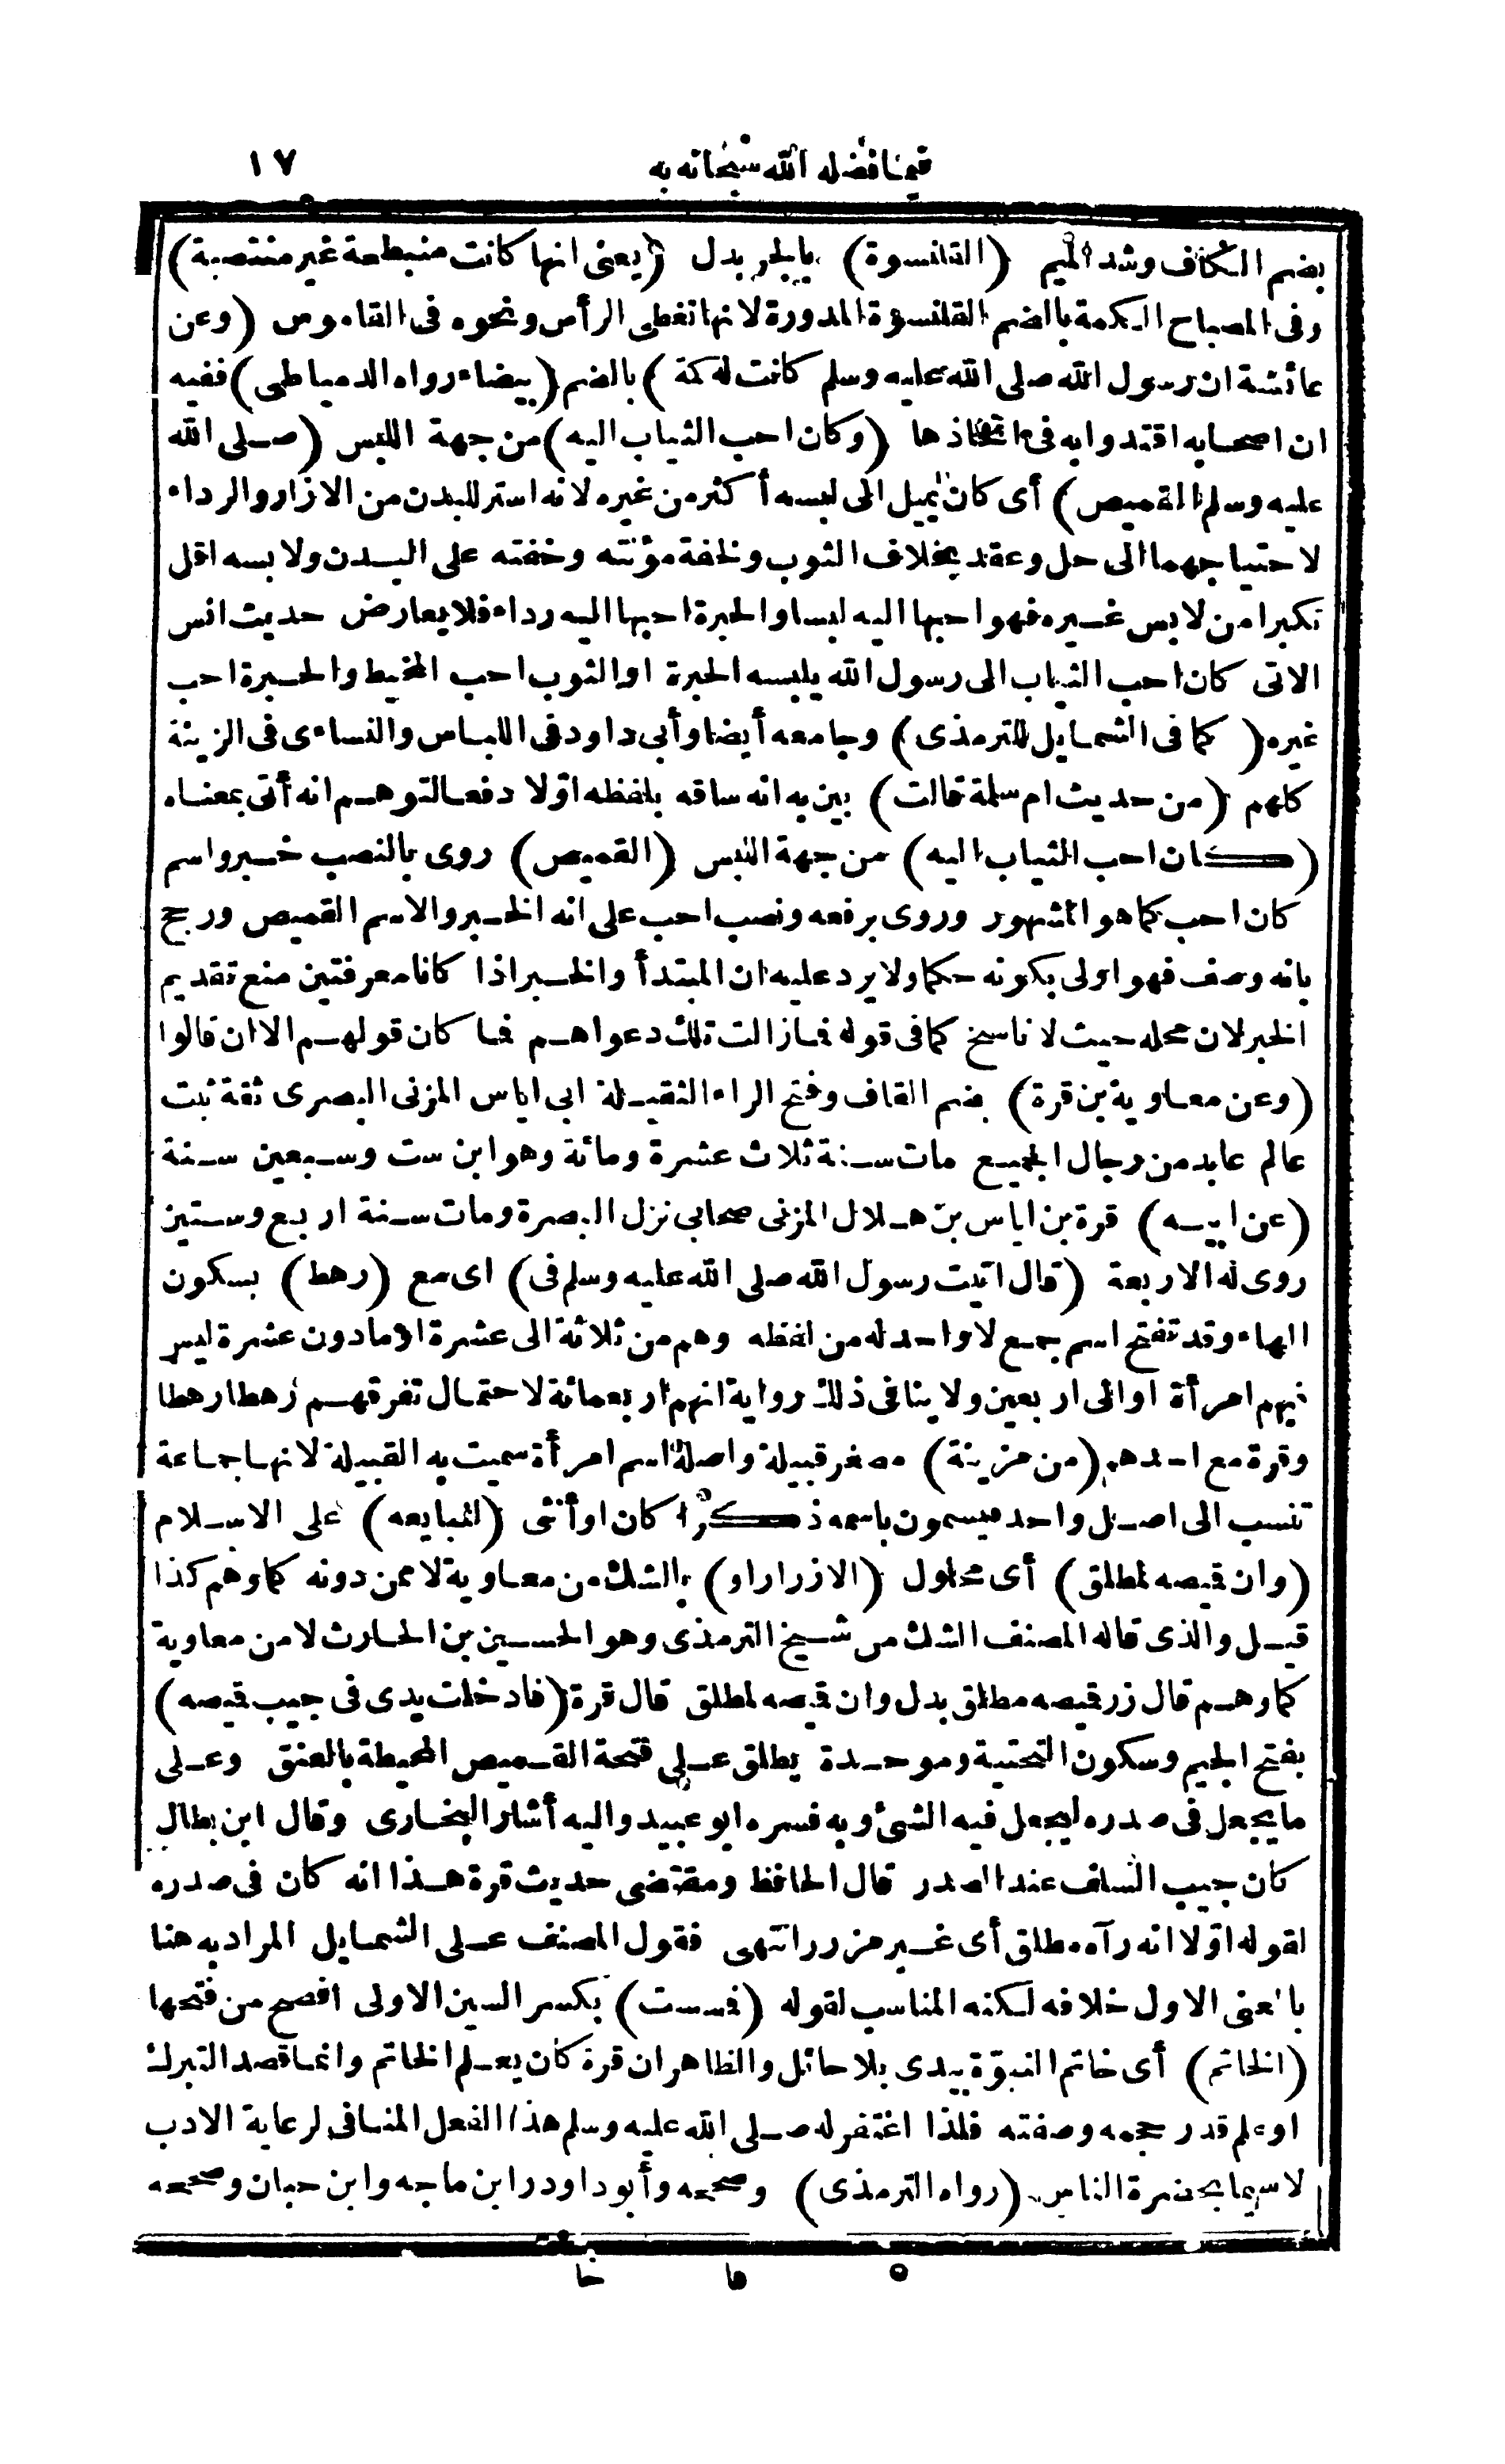 فيما فضله الله سبحانه به ١٧
بضم الكاف وشد الميم (القلنسوة) بالجر بدل (يعنى انها كانت منبطحة غير منتصبة)
وفى المصباح الكمة بالضم القلنسوة المدورة لانها تغطى الرأس ونحوه فى القاموس (وعن
عائشة ان رسول الله صلى الله عليه وسلم كانت له كمة) بالضم (بيضاء رواه الدمياطى) ففيه
ان اصحابه اقتدوا به فى اتخاذها (وكان احب الثياب اليه) من جهة اللبس (صلى الله
عليه وسلم القميص) أى كان يميل الى لبسه أكثر من غيره لانه استر للبدن من الازار والرداء
لاحتياجهما الى حل وعقد بخلاف الثوب ولخفة مؤنته وخفته على البدن ولابسه اقل
تكبرا من لابس غيره فهو احبها اليه لبسا والحبرة احبها اليه رداء فلا يعارض حديث انس
الاتى كان احب الثياب الى رسول الله يلبسه الحبرة او الثوب احب المخيط والحبرة احب
غيره (كما فى الشمايل للترمذى) وجامعه أيضا وأبى داود فى اللباس والنساءى فى الزينة
كلهم (من حديث ام سلمة قالت) بين به انه ساقه بلفظه اولا دفعا لتوهم انه أتى بمعناه
(كان احب الثياب اليه) من جهة اللبس (القميص) روى بالنصب خبر واسم
كان احب كما هو المشهور وروى برفعه ونصب احب على انه الخبر والاسم القميص ورجح
بانه وصف فهو اولى بكونه حكما ولا يرد عليه ان المبتدأ والخبر اذا كانا معرفتين منع تقديم
الخبر لان محله حيث لا ناسخ كما فى قوله فما زالت تلك دعواهم فما كان قولهم الا ان قالوا
(وعن معاوية بن قرة) بضم القاف وفتح الراء الثقيلة ابى اياس المزنى البصرى ثقة ثبت
عالم عابد من رجال الجميع مات سنة ثلاث عشرة ومائة وهو ابن ست وسبعين سنة
(عن ابيه) قرة بن اياس بن هلال المزنى صحابى نزل البصرة ومات سنة اربع وستين
روى له الاربعة (قال اتيت رسول الله صلى الله عليه وسلم فى) اى مع (رهط) بسكون
الهاء وقد تفتح اسم جمع لا واحد له من لفظه وهم من ثلاثة الى عشرة او ما دون عشرة ليس
فيهم امرأة او الى اربعين ولا ينافى ذلك رواية انهم اربعمائة لاحتمال تفرقهم رهطا رهطا
وقرة مع احدهم (من مزينة) مصغر قبيلة واصله اسم امرأة سميت به القبيلة لانها جماعة
تنسب الى اصل واحد فيسمون باسمه ذكرا كان او أنثى (لنبايعه) على الاسلام
(وان قميصه لمطلق) أى محلول (الازرار او) بالشك من معاوية لا ممن دونه كما وهم كذا
قيل والذى قاله المصنف الشك من شيخ الترمذى وهو الحسين بن الحارث لا من معاوية
كما وهم قال زر قميصه مطلق بدل وان قميصه لمطلق قال قرة (فادخلت يدى فى جيب قميصه)
بفتح الجيم وسكون التحتية وموحدة يطلق على فتحة القميص المحيطة بالعنق وعلى
ما يجعل فى صدره ليجعل فيه الشئ وبه فسره ابو عبيد واليه أشار البخارى وقال ابن بطال
كان جيب السلف عند الصدر قال الحافظ ومقتضى حديث قرة هذا انه كان فى صدره
لقوله اولا انه رآه مطلق أى غير مزرر انتهى فقول المصنف على الشمايل المراد به هنا
بالمعنى الاول خلافه لكنه المناسب لقوله (فمسست) بكسر السين الاولى افصح من فتحها
(الخاتم) أى خاتم النبوة بيدى بلا حائل والظاهر ان قرة كان يعلم الخاتم وانما قصد التبرك
او علم قدر حجمه وصفته فلذا اغتفر له صلى الله عليه وسلم هذا الفعل المنافى لرعاية الادب
لا سيما بحضرة الناس (رواه الترمذى) وصححه وأبو داود وابن ماجه وابن حبان وصححه
٥ قا خا